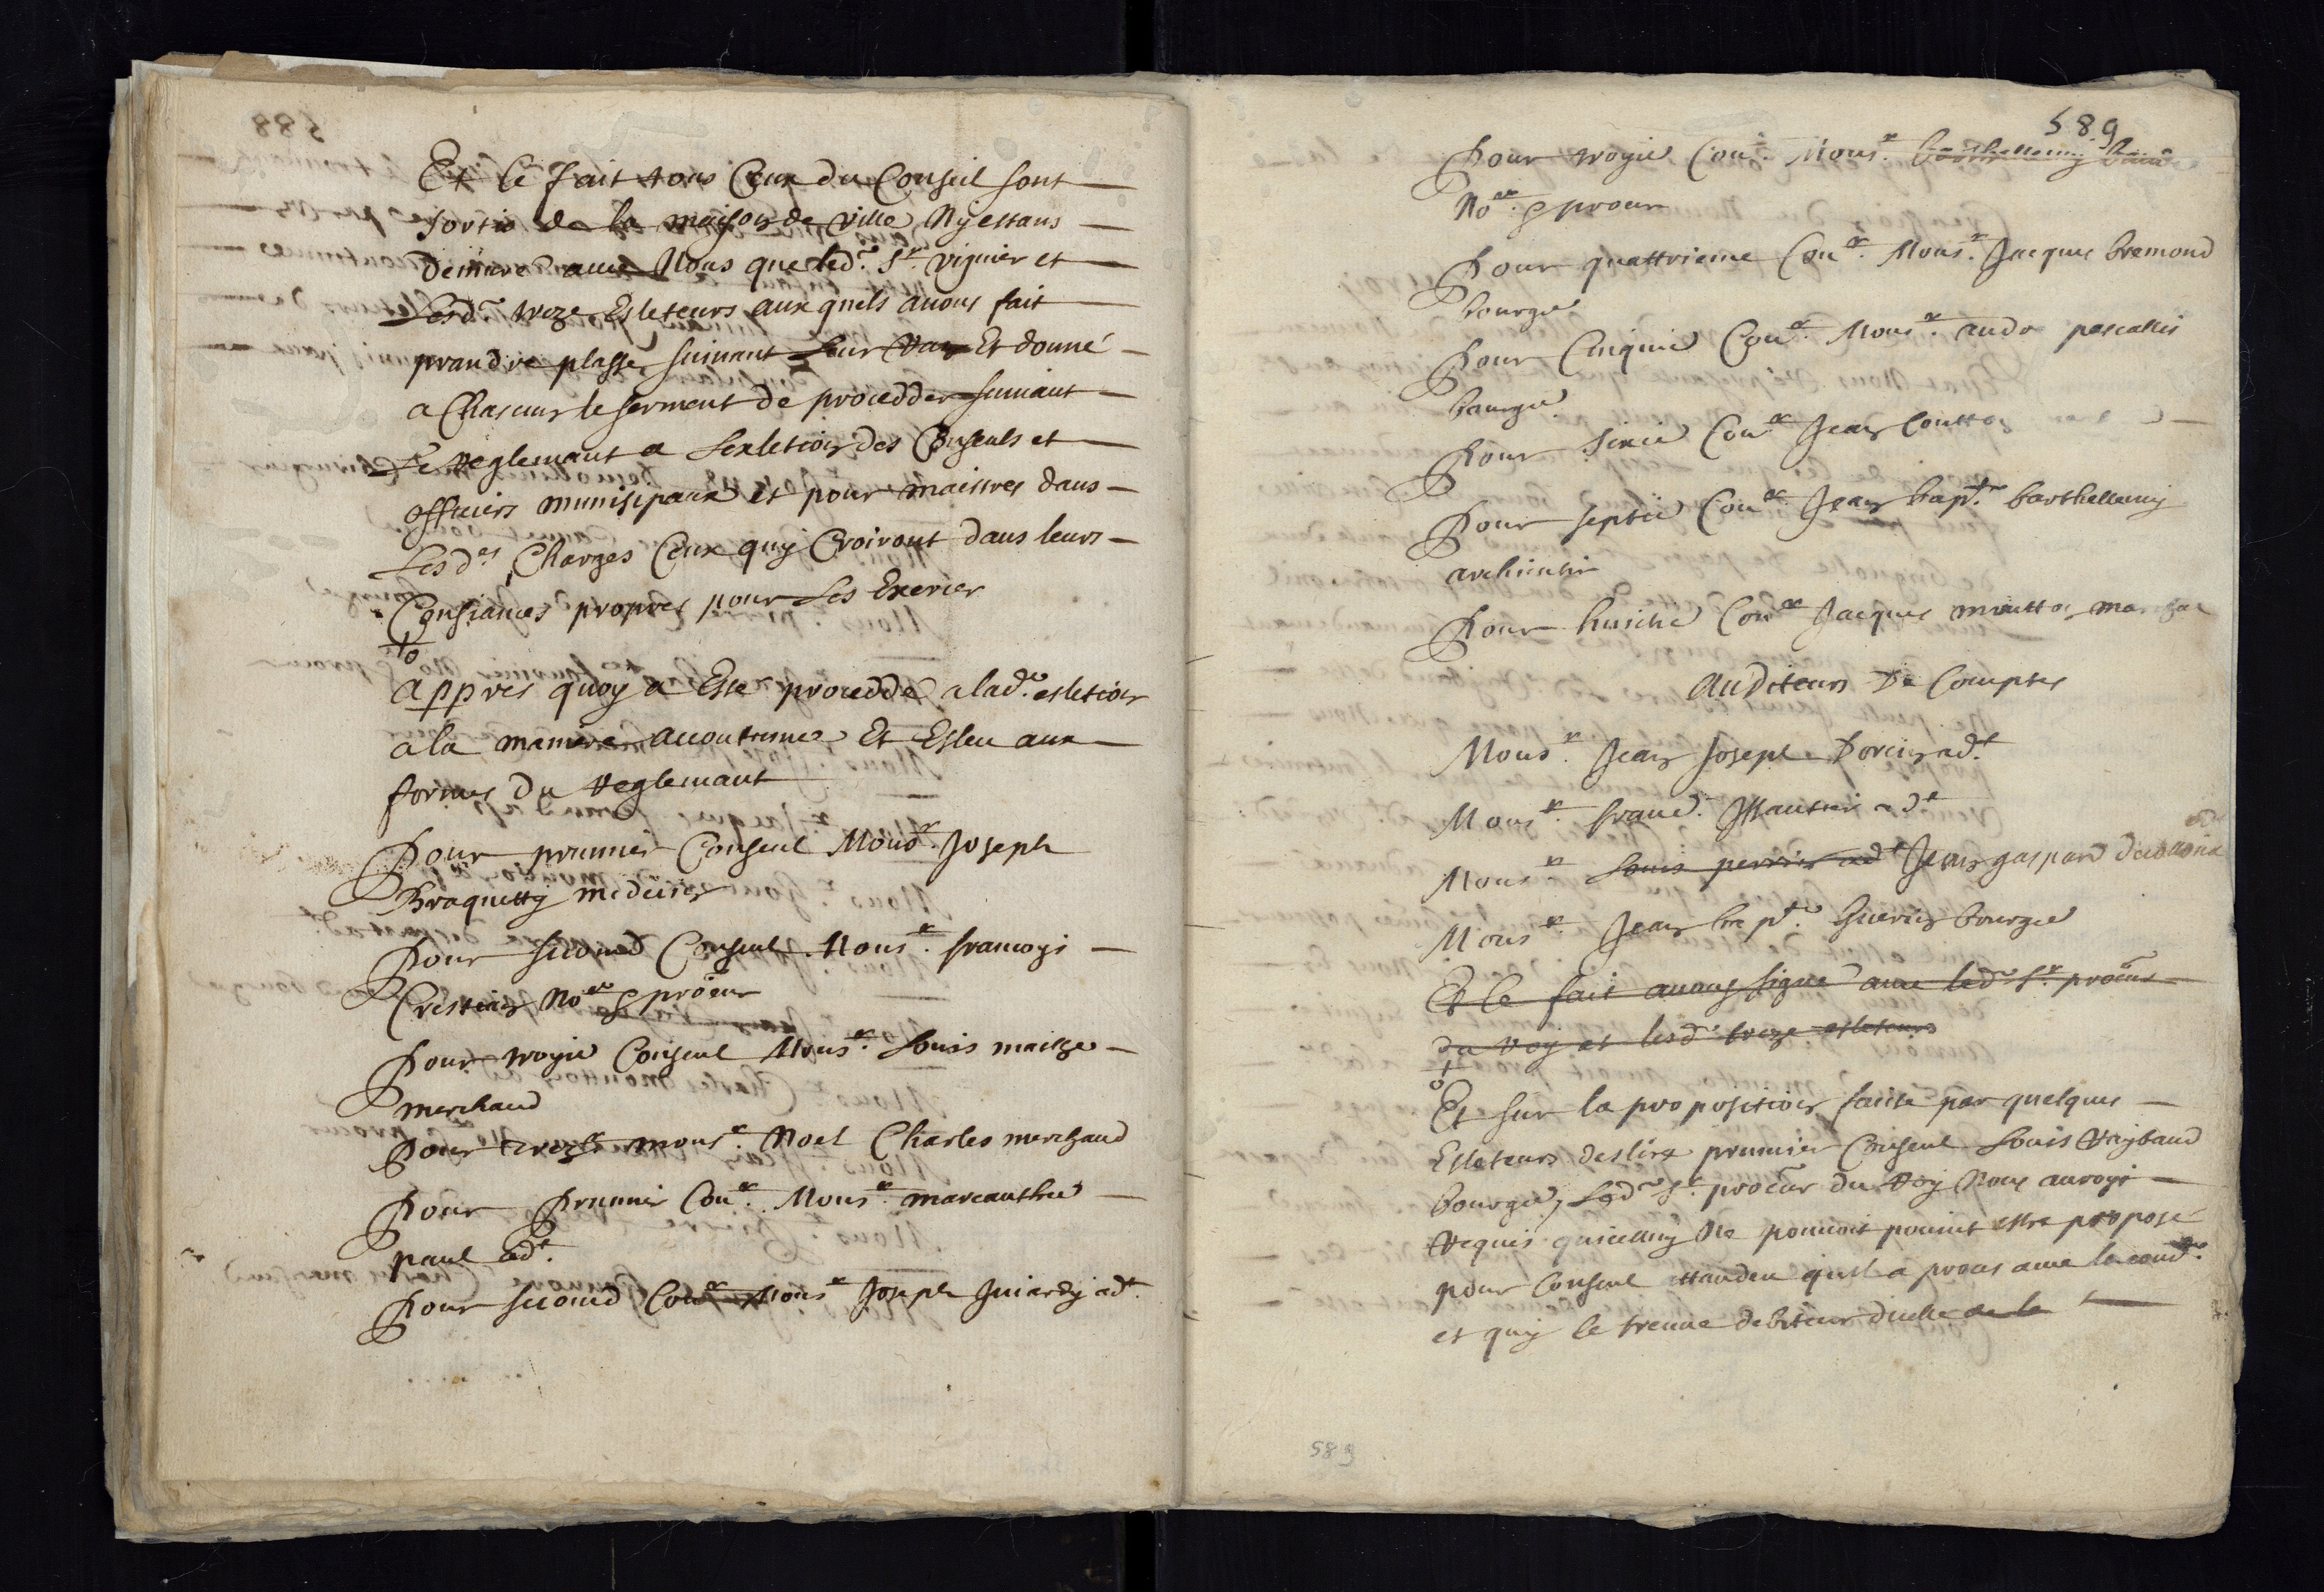 Et ce fait tous Ceux du Conseil sont
sortis de la maison de ville Ny estans
demuré avec Nous que led. Sr. viguier et
Lesd. treze Esleteurs aux quels avons fait
prandre plasse suivant Leur Et donné
a Chascun le serment de procedder suivant
Le reglemant a Lesletion des Conseuls et
officiers munisipaux et pour maistres dans
Lesd.es Charges Ceux quy Croiront dans leurs
Consiances propres pour Les Exercer
appres quoy a Este procedde a lad.e esletion
a la maniere acoutumee Et Esleu aux
formes du reglemant
Pour prumier Conseul Mousr. Joseph
Braquetty medecin
Pour second Conseul Mousr. francoys
Crestian No.re procur
Pour troyie Conseul Mousr. Louis
merchand
Pour mousr. Noel Charles merchand
Pour Prumier Con.er Mousr. marcanthoe
paul ad.t
Pour second Con.er Mousr Joseph ad.t
589
Pour troyie Con.er Mousr. barthellemy
No.re procur
Pour quattrieme Con.er Mousr. Jacques bremond
bourgie
Pour Cinquie Con.er Mousr. pascallis
bourgie
Pour sixie Con.er Jean Coutton
Pour septie Con.er Jean bap.te barthellemy
Pour huictie Con.er Jacques
Auditeurs De Comptes
Mousr. Jean Joseph ad.t
Mousr. ad.t
Mousr. Louis perrin ad.t Jean gaspard
Mousr. Jean bap.te Guerin bourgie
Et Ce fait avons signe avec led. Sr. procur
du roy et lesd. treze esleteurs
Et sur la proposition faite par quelques
Esleteurs deslire prumier Conseul Louis
bourgie, Led. Sr. procur du Roy Nous auroyt
requis quicelluy Ne pouvoit pouint estre proposé
pour Conseul attandeu quil a proces avec la com.te
et quy se treuve debiteur dicelle
589